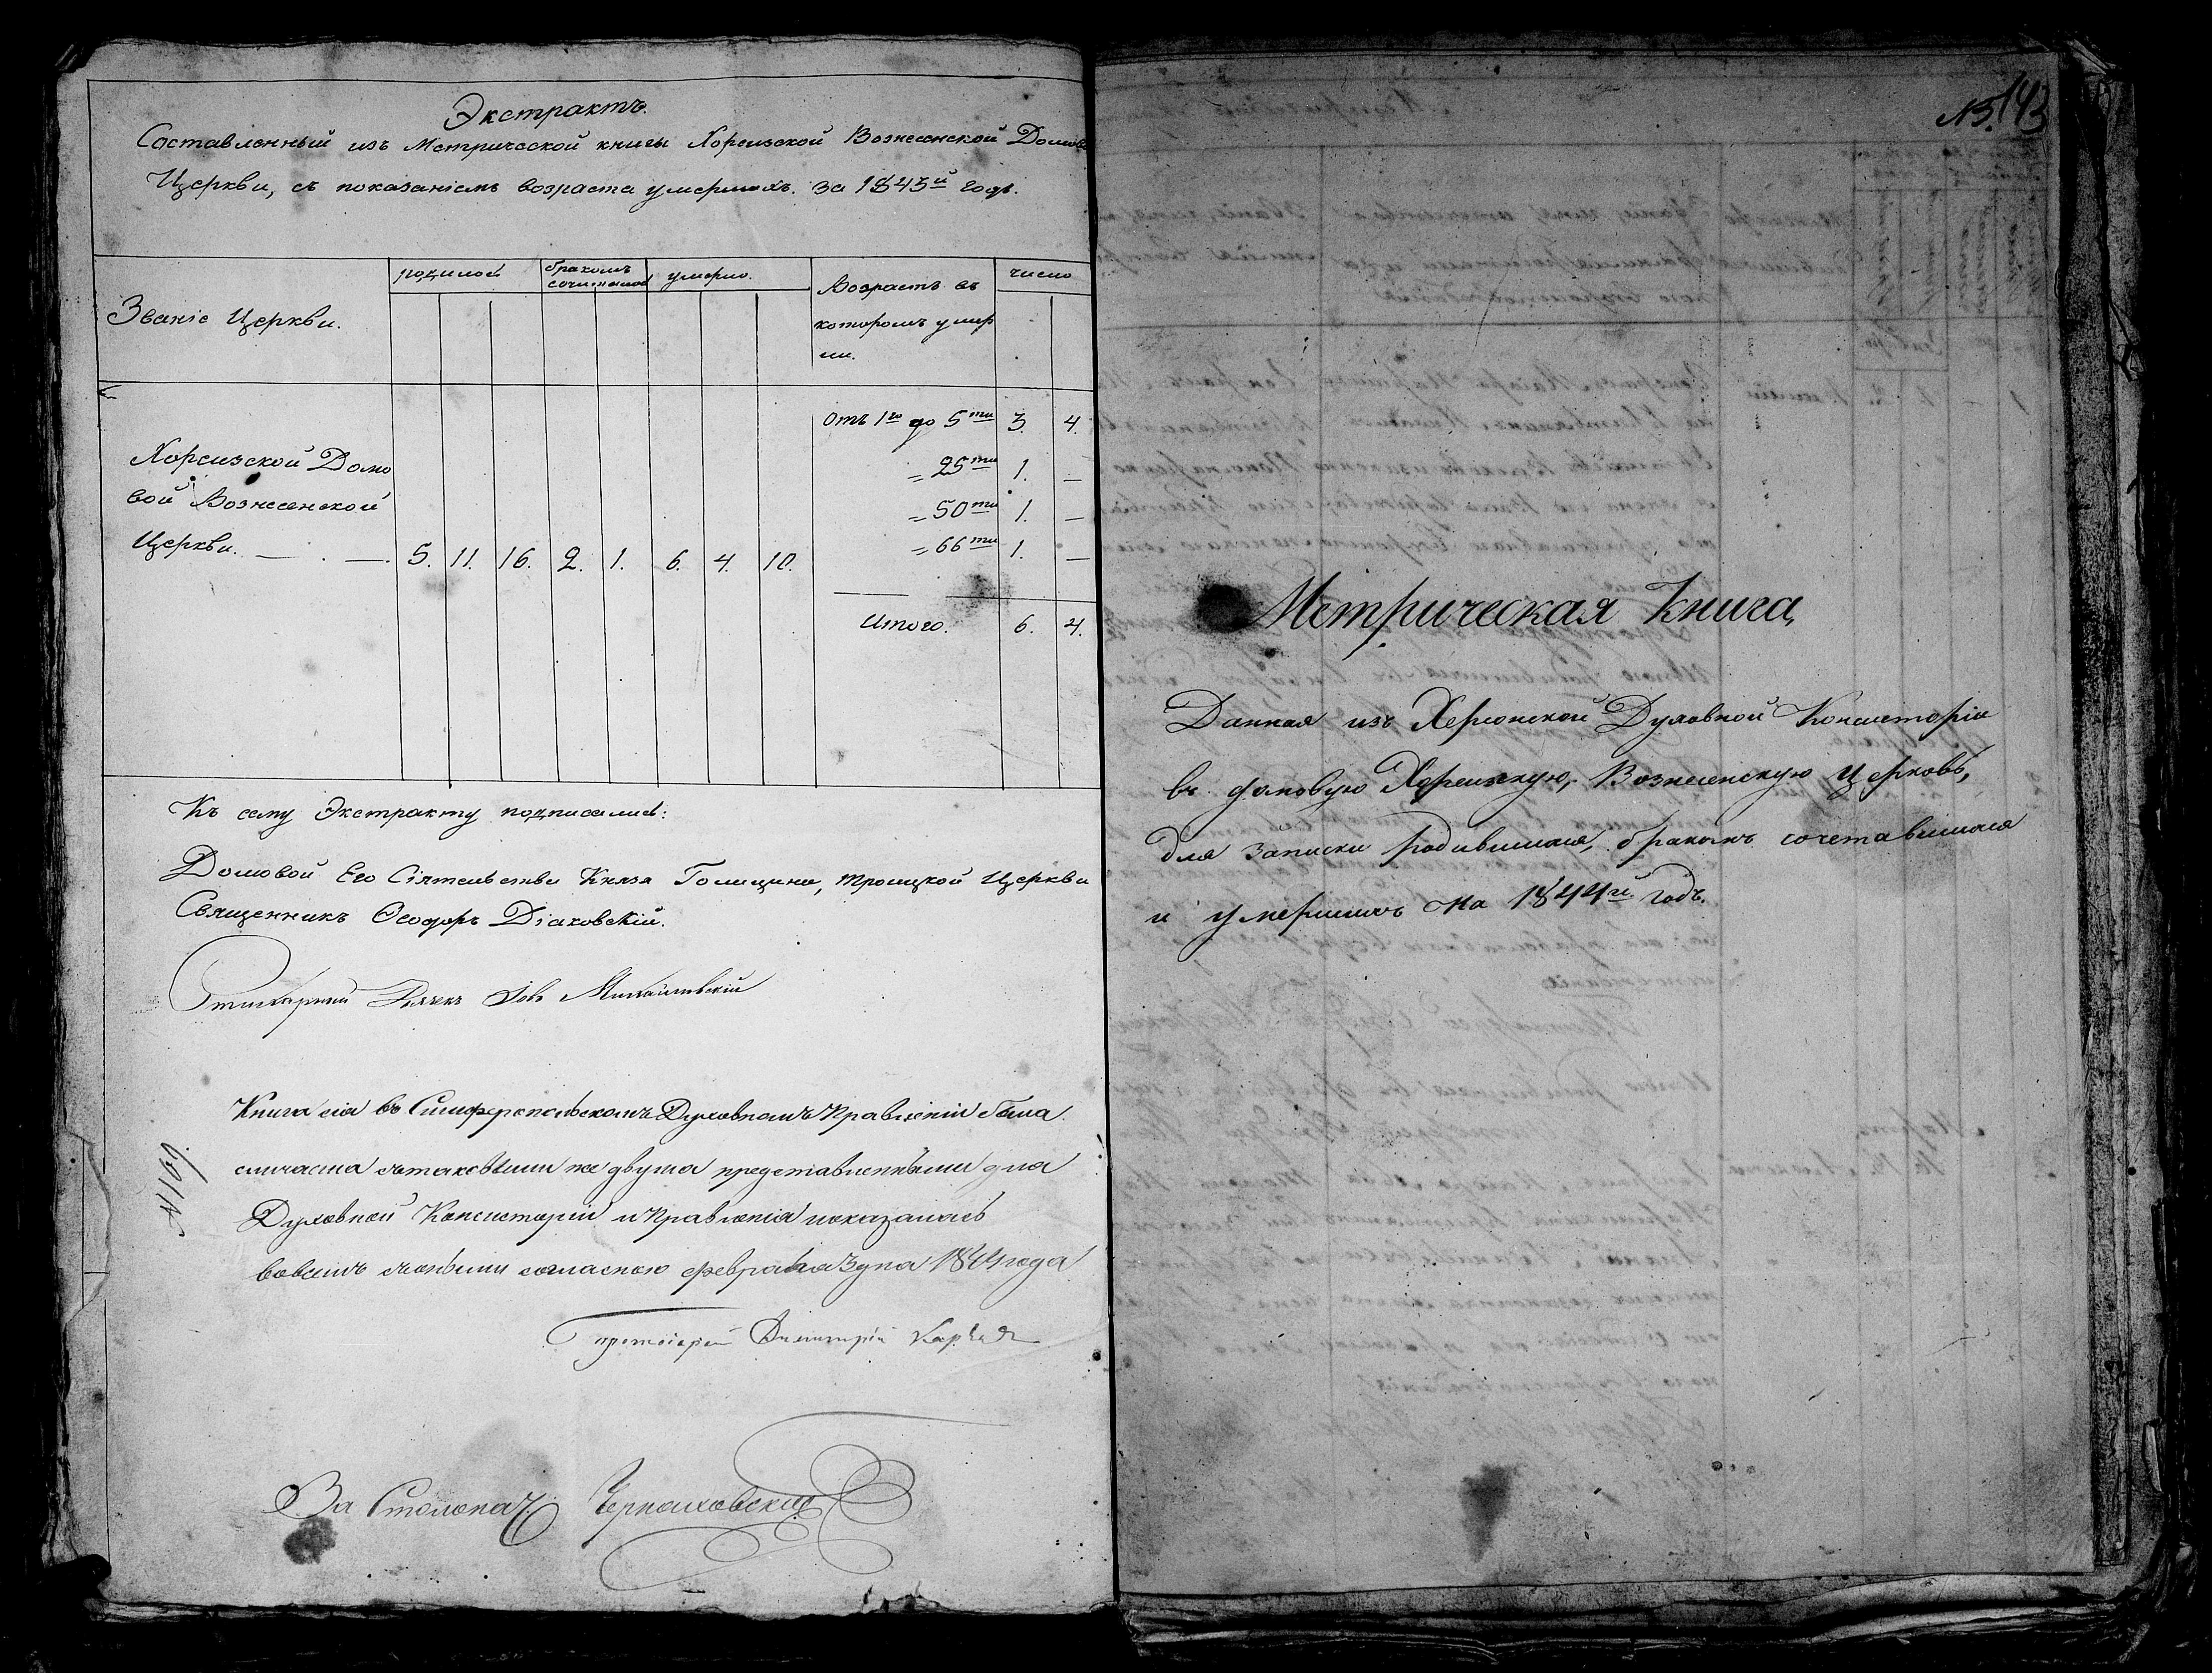 Экстрактъ.
Составленный изъ Метрической книги Хореизской Вознесенской Домово
Церкви, съ показаніемъ возраста умершихъ. За 1843й годъ.
Званіе Церкви.
родилось
бракомъ сочеталось
умерло.
Возрастъ въ
которомъ умер
ли.
число
Хореизской Домо
вой Вознесенской
Церкви. — . — . 5. 11. 16. 2. 1. 6. 4. 10.
Отъ 1го до 5ти 3. 4.
= 25ти 1. —
= 50ти 1. —
= 66ти 1. —
Итого. 6. 4.
Къ сему Экстракту подписались:
Домовой Его Сіятельства Князя Голицына, Троицкой Церкви
Священникъ Ѳеодоръ Діаковскій.
Стихарный Дьячекъ Іовъ Михайловскій
№ 169
Книга сія въ Симферопольскомъ Духовномъ Правленіи была
сличаема съ таковыми же двума представленными для
Духовной Консисторіи и Правленія и оказалась
во всемъ съ оными согласною февраля 3 дня 1844 года
Протоіерей Димитрій
За Столонач. Черняховскій
№. 143
Метрическая Книга,
Данная изъ Херсонской Духовной Консисторіи
въ домовую Хореизскую, Вознесенскую Церковь,
для записки родившихся, бракомъ сочетавшихся
и умершихъ на 1844й годъ.